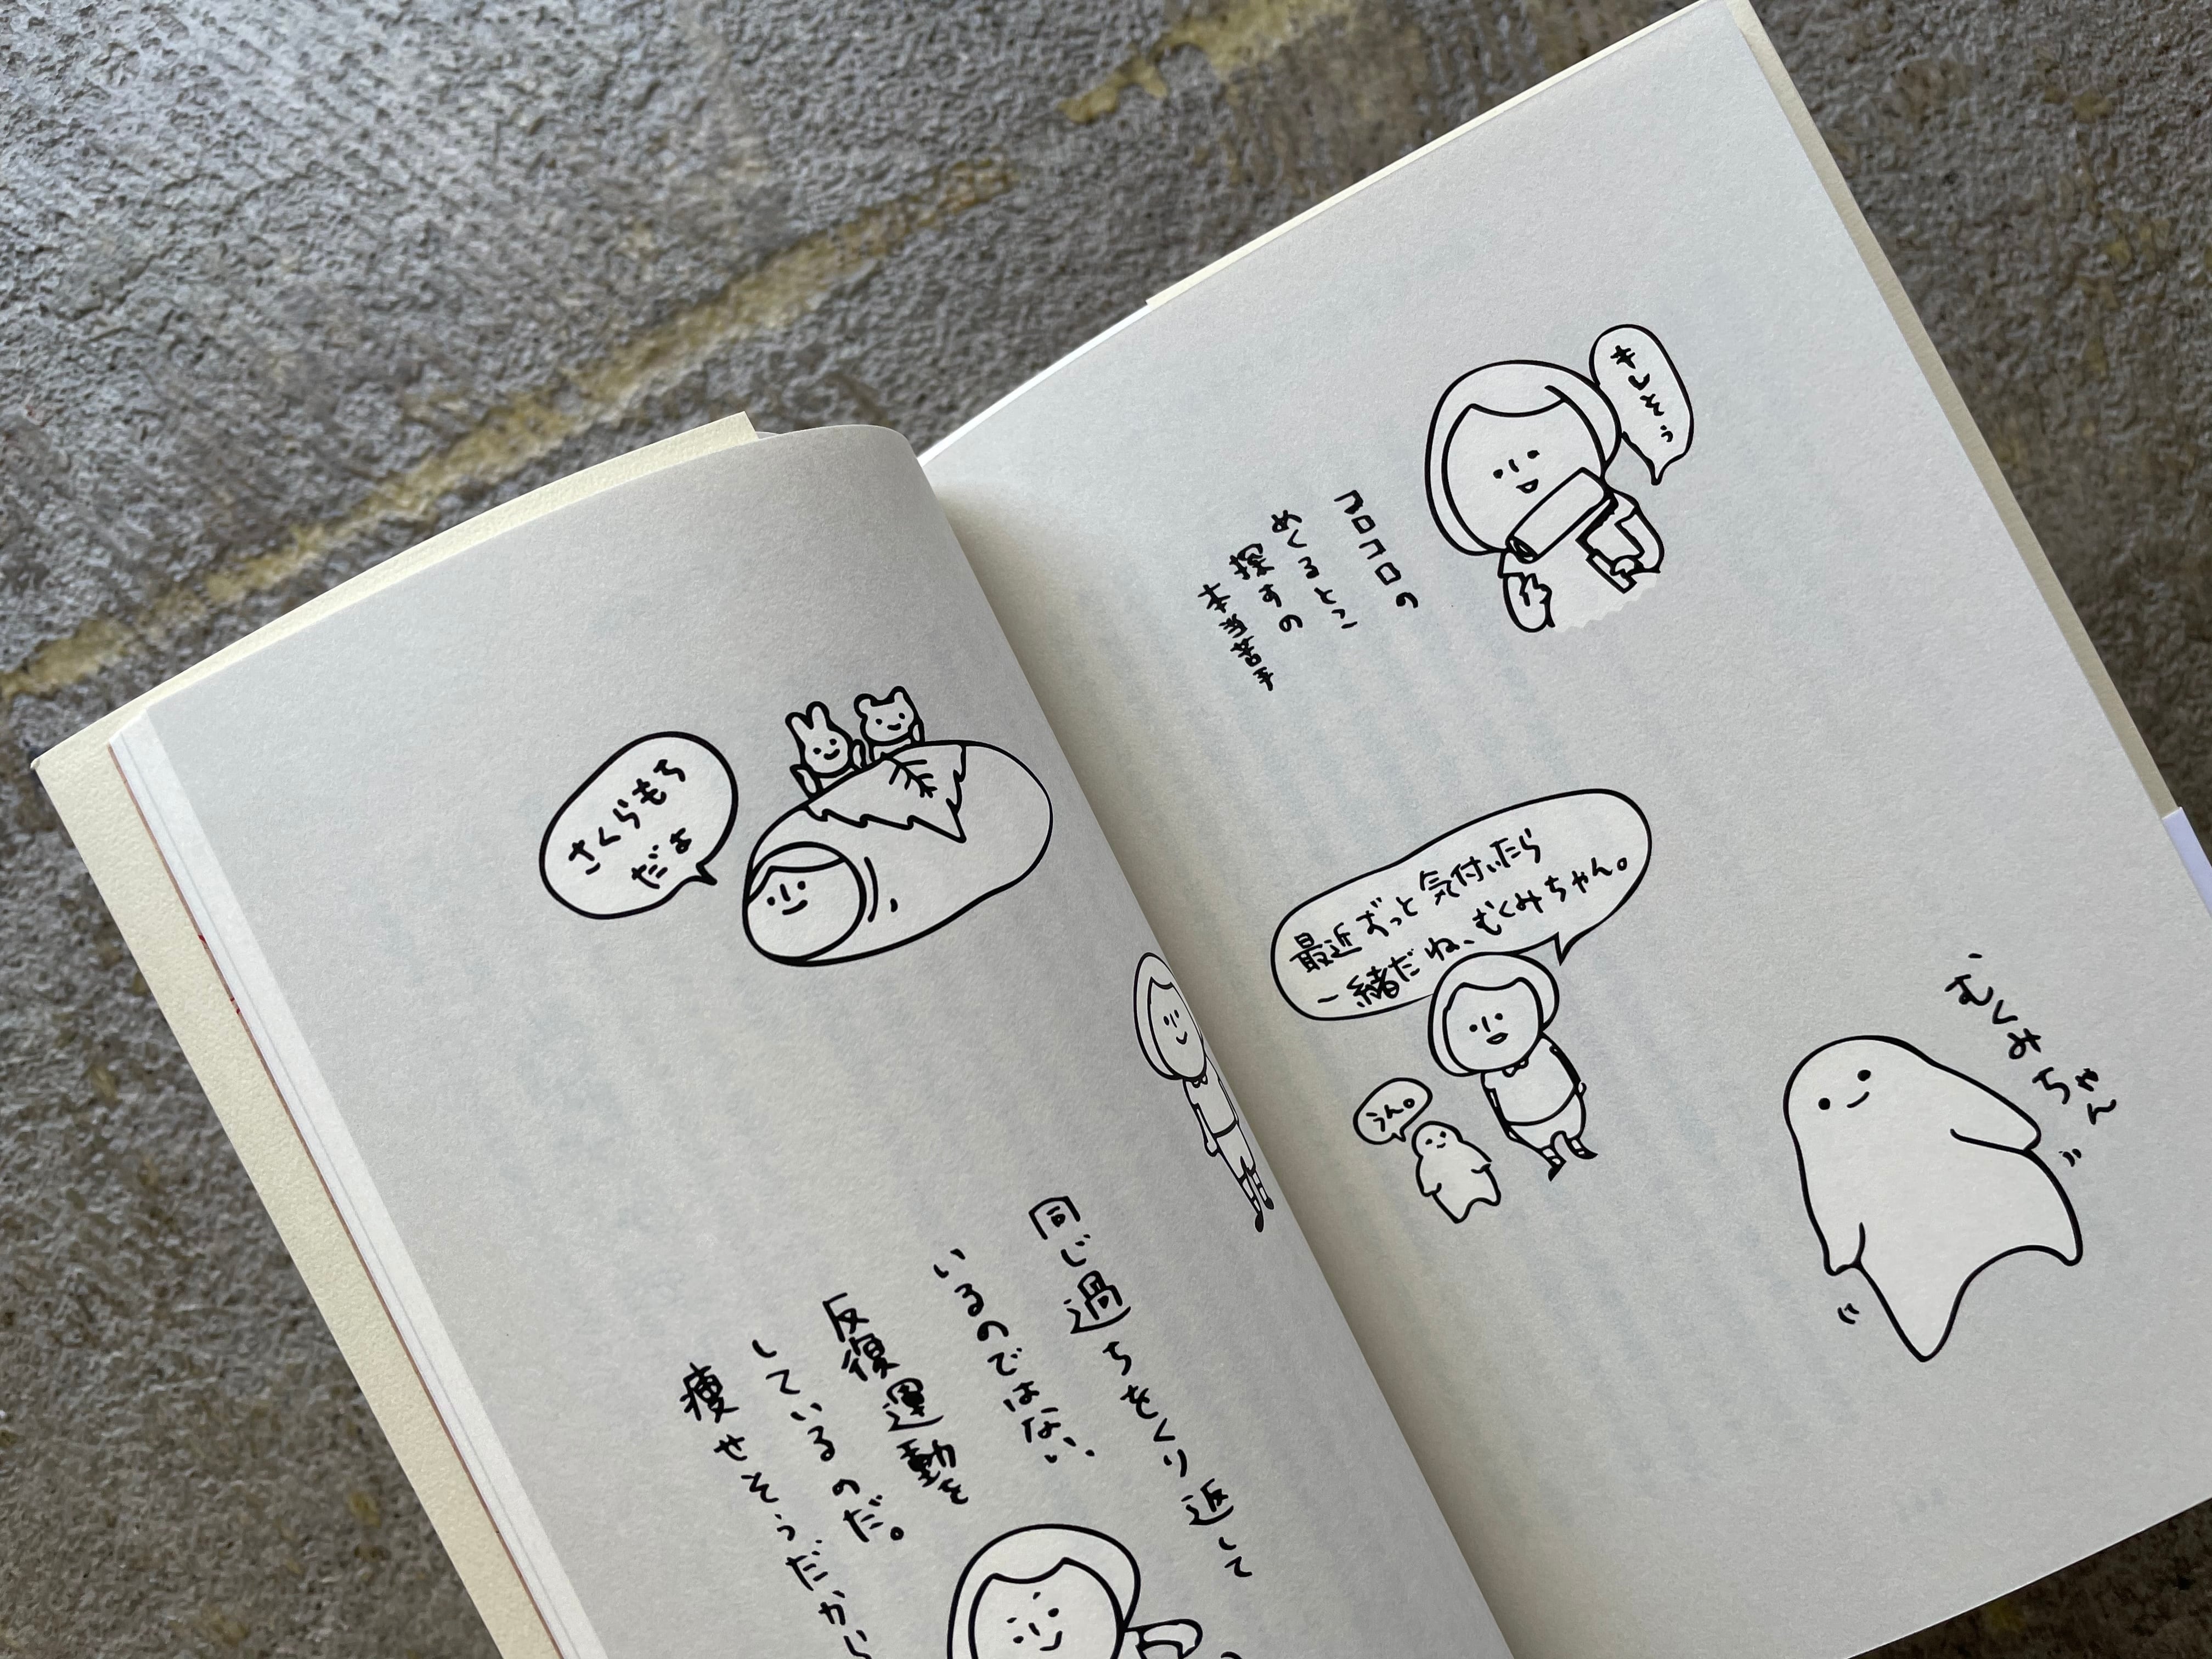 キレそう
コロコロの
めくるとこ
探すの
本当苦手
最近ずっと気付いたら
一緒だね、むくみちゃん。
うん。
むくみちゃん
さくらもち
だよ
同じ過ちをくり返して
いるのではない、
反復運動を
しているのだ。
痩せそうだから